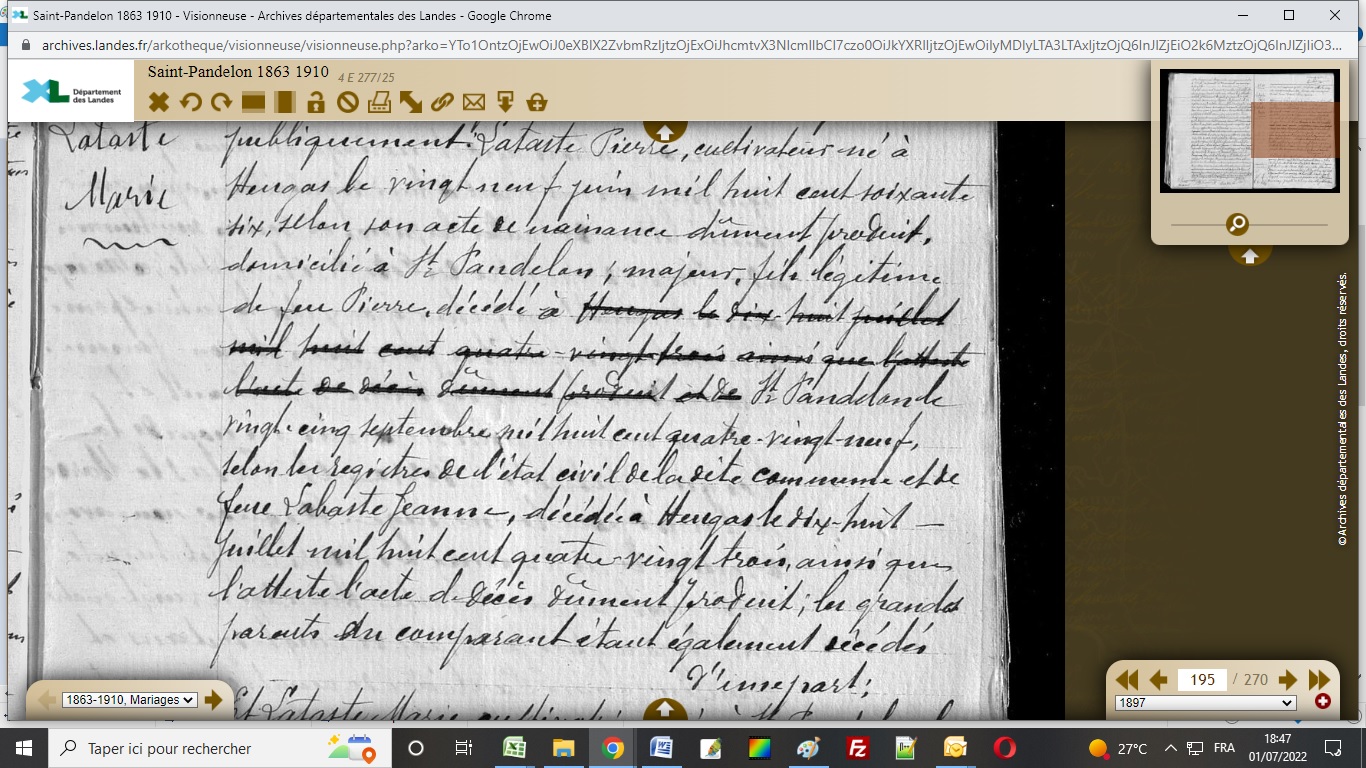 Saint-Pandelon 1863 1910 - Visionneuse - Archives départementales des Landes - Google Chrome
archives.landes.fr/arkotheque/visionneuse/visionneuse.php?arko=
XL Département des Landes
Saint-Pandelon 1863 1910 4 E 277/25
Lataste
Marie
publiquement: Lataste Pierre, cultivateur né à
Heugas le vingt neuf juin mil huit cent soixante
six, selon son acte de naissance dûment produit,
domicilié à St Pandelon, majeur, fils légitime
de feu Pierre, décédé à Heugas le dix-huit juillet
mil huit cent quatre-vingt trois ainsi que l'atteste
l'acte de décès dûment produit et de St Pandelon le
vingt-cinq septembre mil huit cent quatre-vingt-neuf,
selon les registres de l'état civil de la dite commune et de
feue Labaste Jeanne, décédée à Heugas le dix-huit —
juillet mil huit cent quatre-vingt trois, ainsi que
l'atteste l'acte de décès dûment produit; les grands
parents du comparant étant également décédés
d'une part;
Et Lataste Marie
©Archives départementales des Landes, droits réservés.
1863-1910, Mariages
195 / 270
1897
Taper ici pour rechercher
27°C
FRA
18:47
01/07/2022